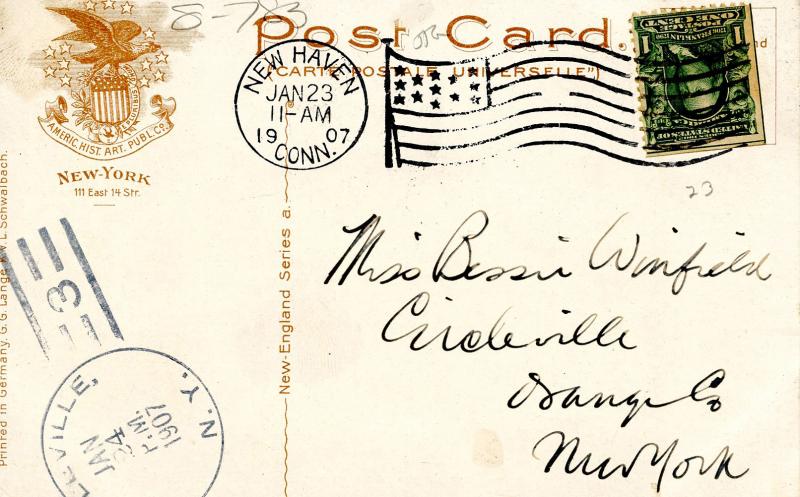 8-783
Post Card.
("CARTE POSTALE UNIVERSELLE")
AMERIC. HIST. ART. PUBL. Co.
NEW-YORK
111 East 14 Str.
NEW HAVEN
JAN 23
11-AM
1907
CONN.
ONE CENT
POSTAGE
1 1
23
Miss Bessie Winfield
Circleville
Orange Co
New York
New-England Series a.
Printed in Germany. G. G. Lange K. W. L. Schwalbach.
3
LEVILLE, N. Y.
JAN
24
P.M.
1907